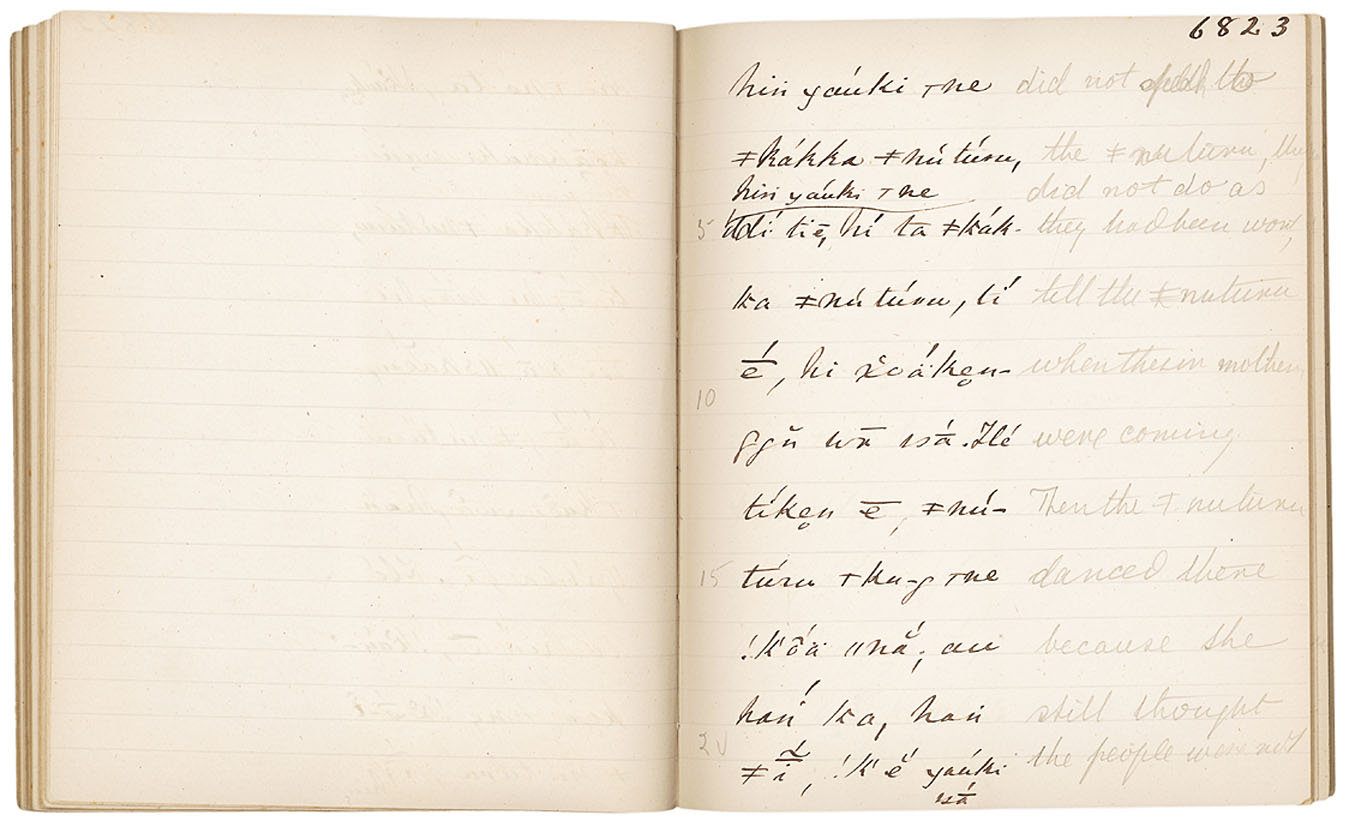 6823
hiṅ yaúki ᴛne did not speak to
ǂkákka ǂnútúru, the ǂnuturu, they
hiṅ yaúki ᴛne did not do as
5 ddí tiē, hí ta ǂkák- they had been wont,
ka ǂnútúru, tí tell the ǂnuturu
é̄, hi x̌oä́kẹn- when their mothers
ggŭ wā ssā́. Hé were coming.
10
tíkẹn ē, ǂnú- Then the ǂnuturu
15 túru ᴛku-g ᴛne danced there
!kṍä ǁnắ; au because she
haṅ́ ka, haṅ still thought
20 ǂī̃́, !k'é yaúki the people were not
ssā́